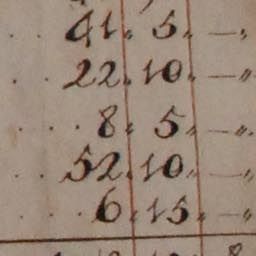 41. 5. —„
22. 10. —„
8. 5. —„
52. 10. —„
6. 15. —„